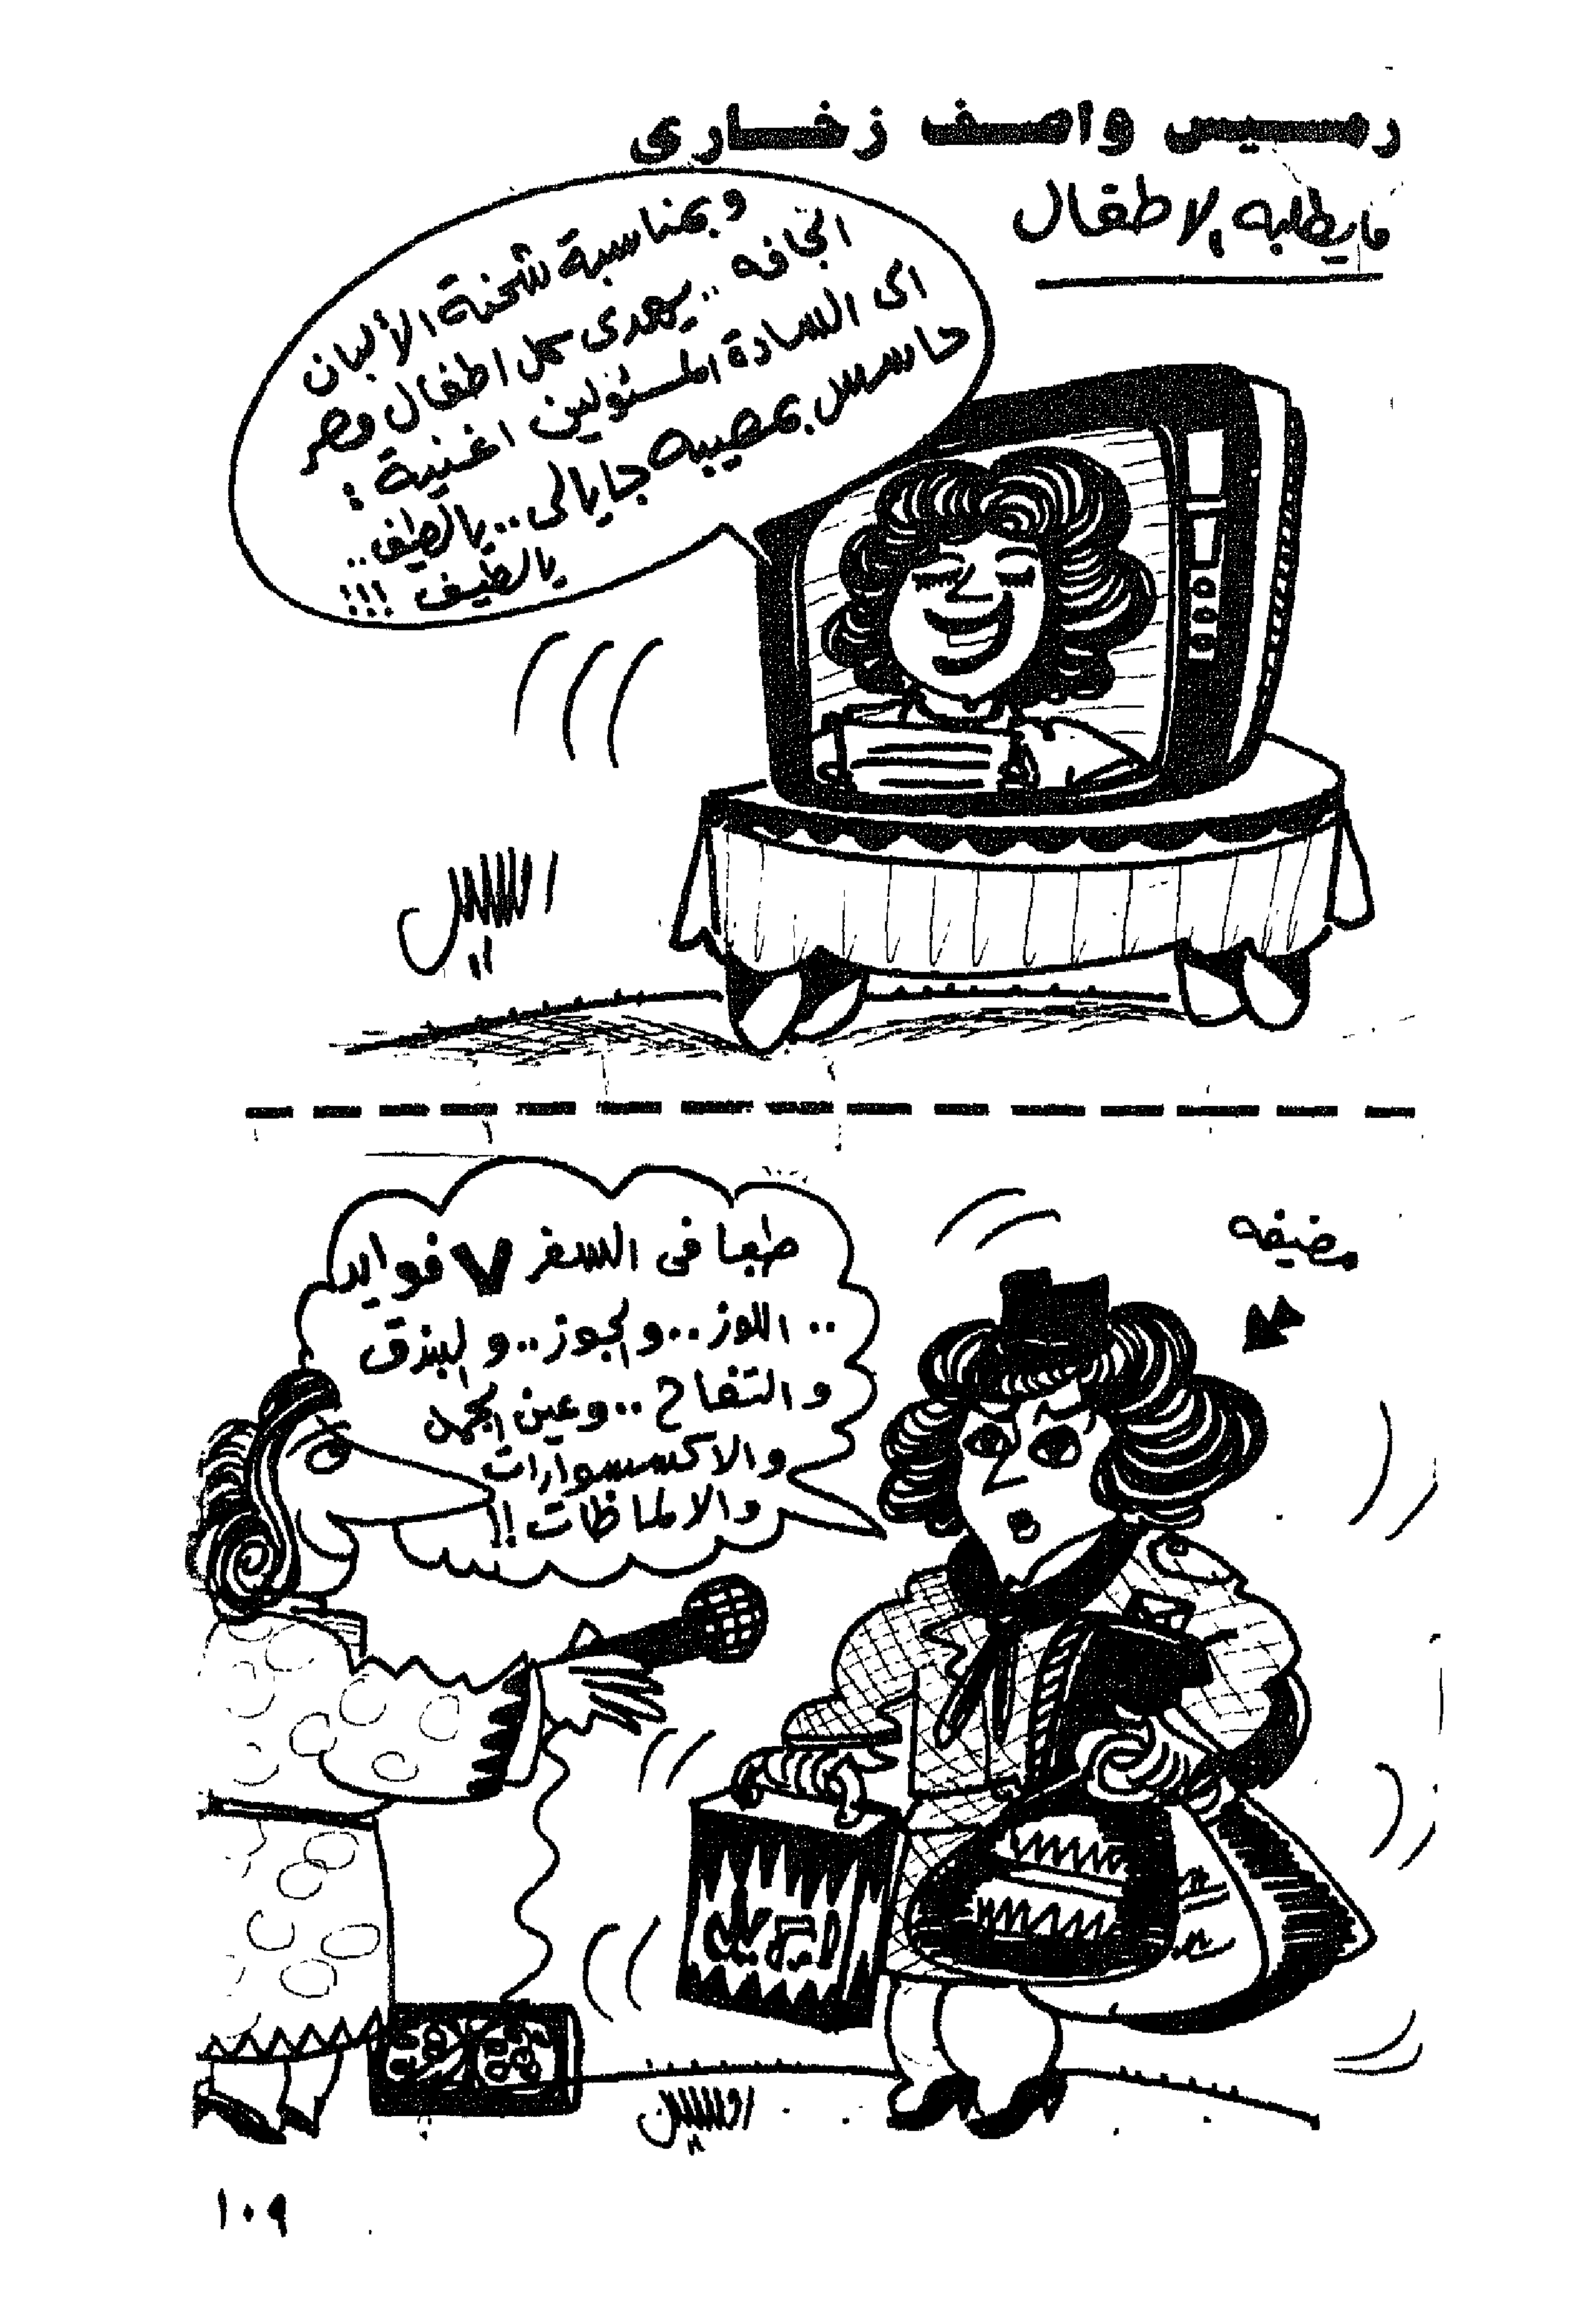 رمسيس واصف زخارى
مايطلبه الاطفال
وبمناسبة شحنة الألبان
الجافه .. يهدى كل اطفال مصر
الى السادة المسئولين اغنية :
حاسس بمصيبه جايالى .. يالطيف ..
يالطيف !!!
مضيفه
طبعا فى السفر ٧ فوايد
.. اللوز .. والجوز .. والبندق
والتفاح .. وعين الجمل
والاكسسوارات
والالماظات !!
١٠٩